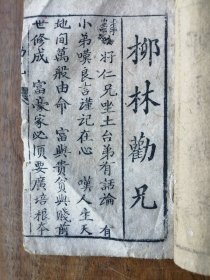 柳林勸兄
好仁兄坐土台弟有話論 有
小弟嘆良言謹記在心 嘆人生天
地间萬般由命 富與貴貧與賤前
世修成 富豪家必須要廣培根本